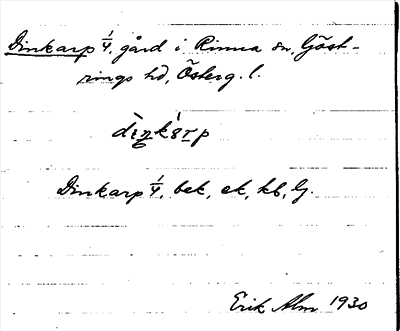 Dinkarp 1/4, gård i Rinna sn, Göst-
rings hd, Österg. l.
Dinkarp 1/4, bek, ek, kb, Gj.
Erik Alm 1930